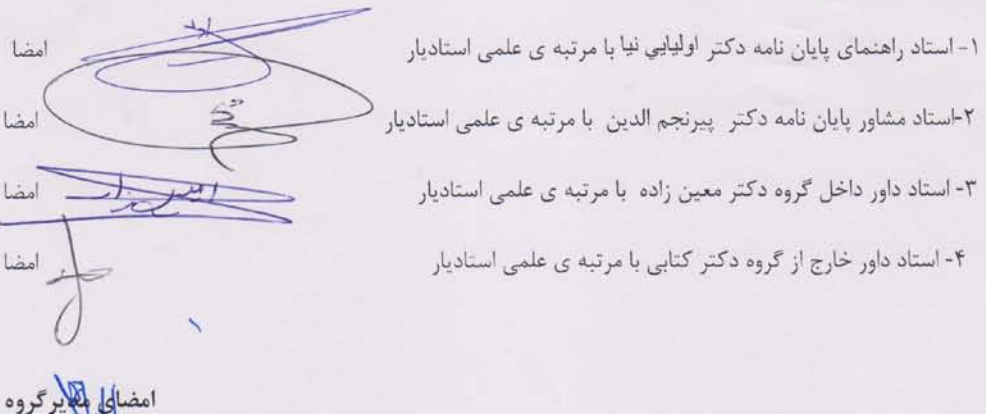 ۱- استاد راهنمای پایان نامه دکتر اولیایی نیا با مرتبه ی علمی استادیار امضا
۲-استاد مشاور پایان نامه دکتر پیرنجم الدین با مرتبه ی علمی استادیار امضا
۳- استاد داور داخل گروه دکتر معین زاده با مرتبه ی علمی استادیار امضا
۴- استاد داور خارج از گروه دکتر کتابی با مرتبه ی علمی استادیار امضا
امضای مدیر گروه